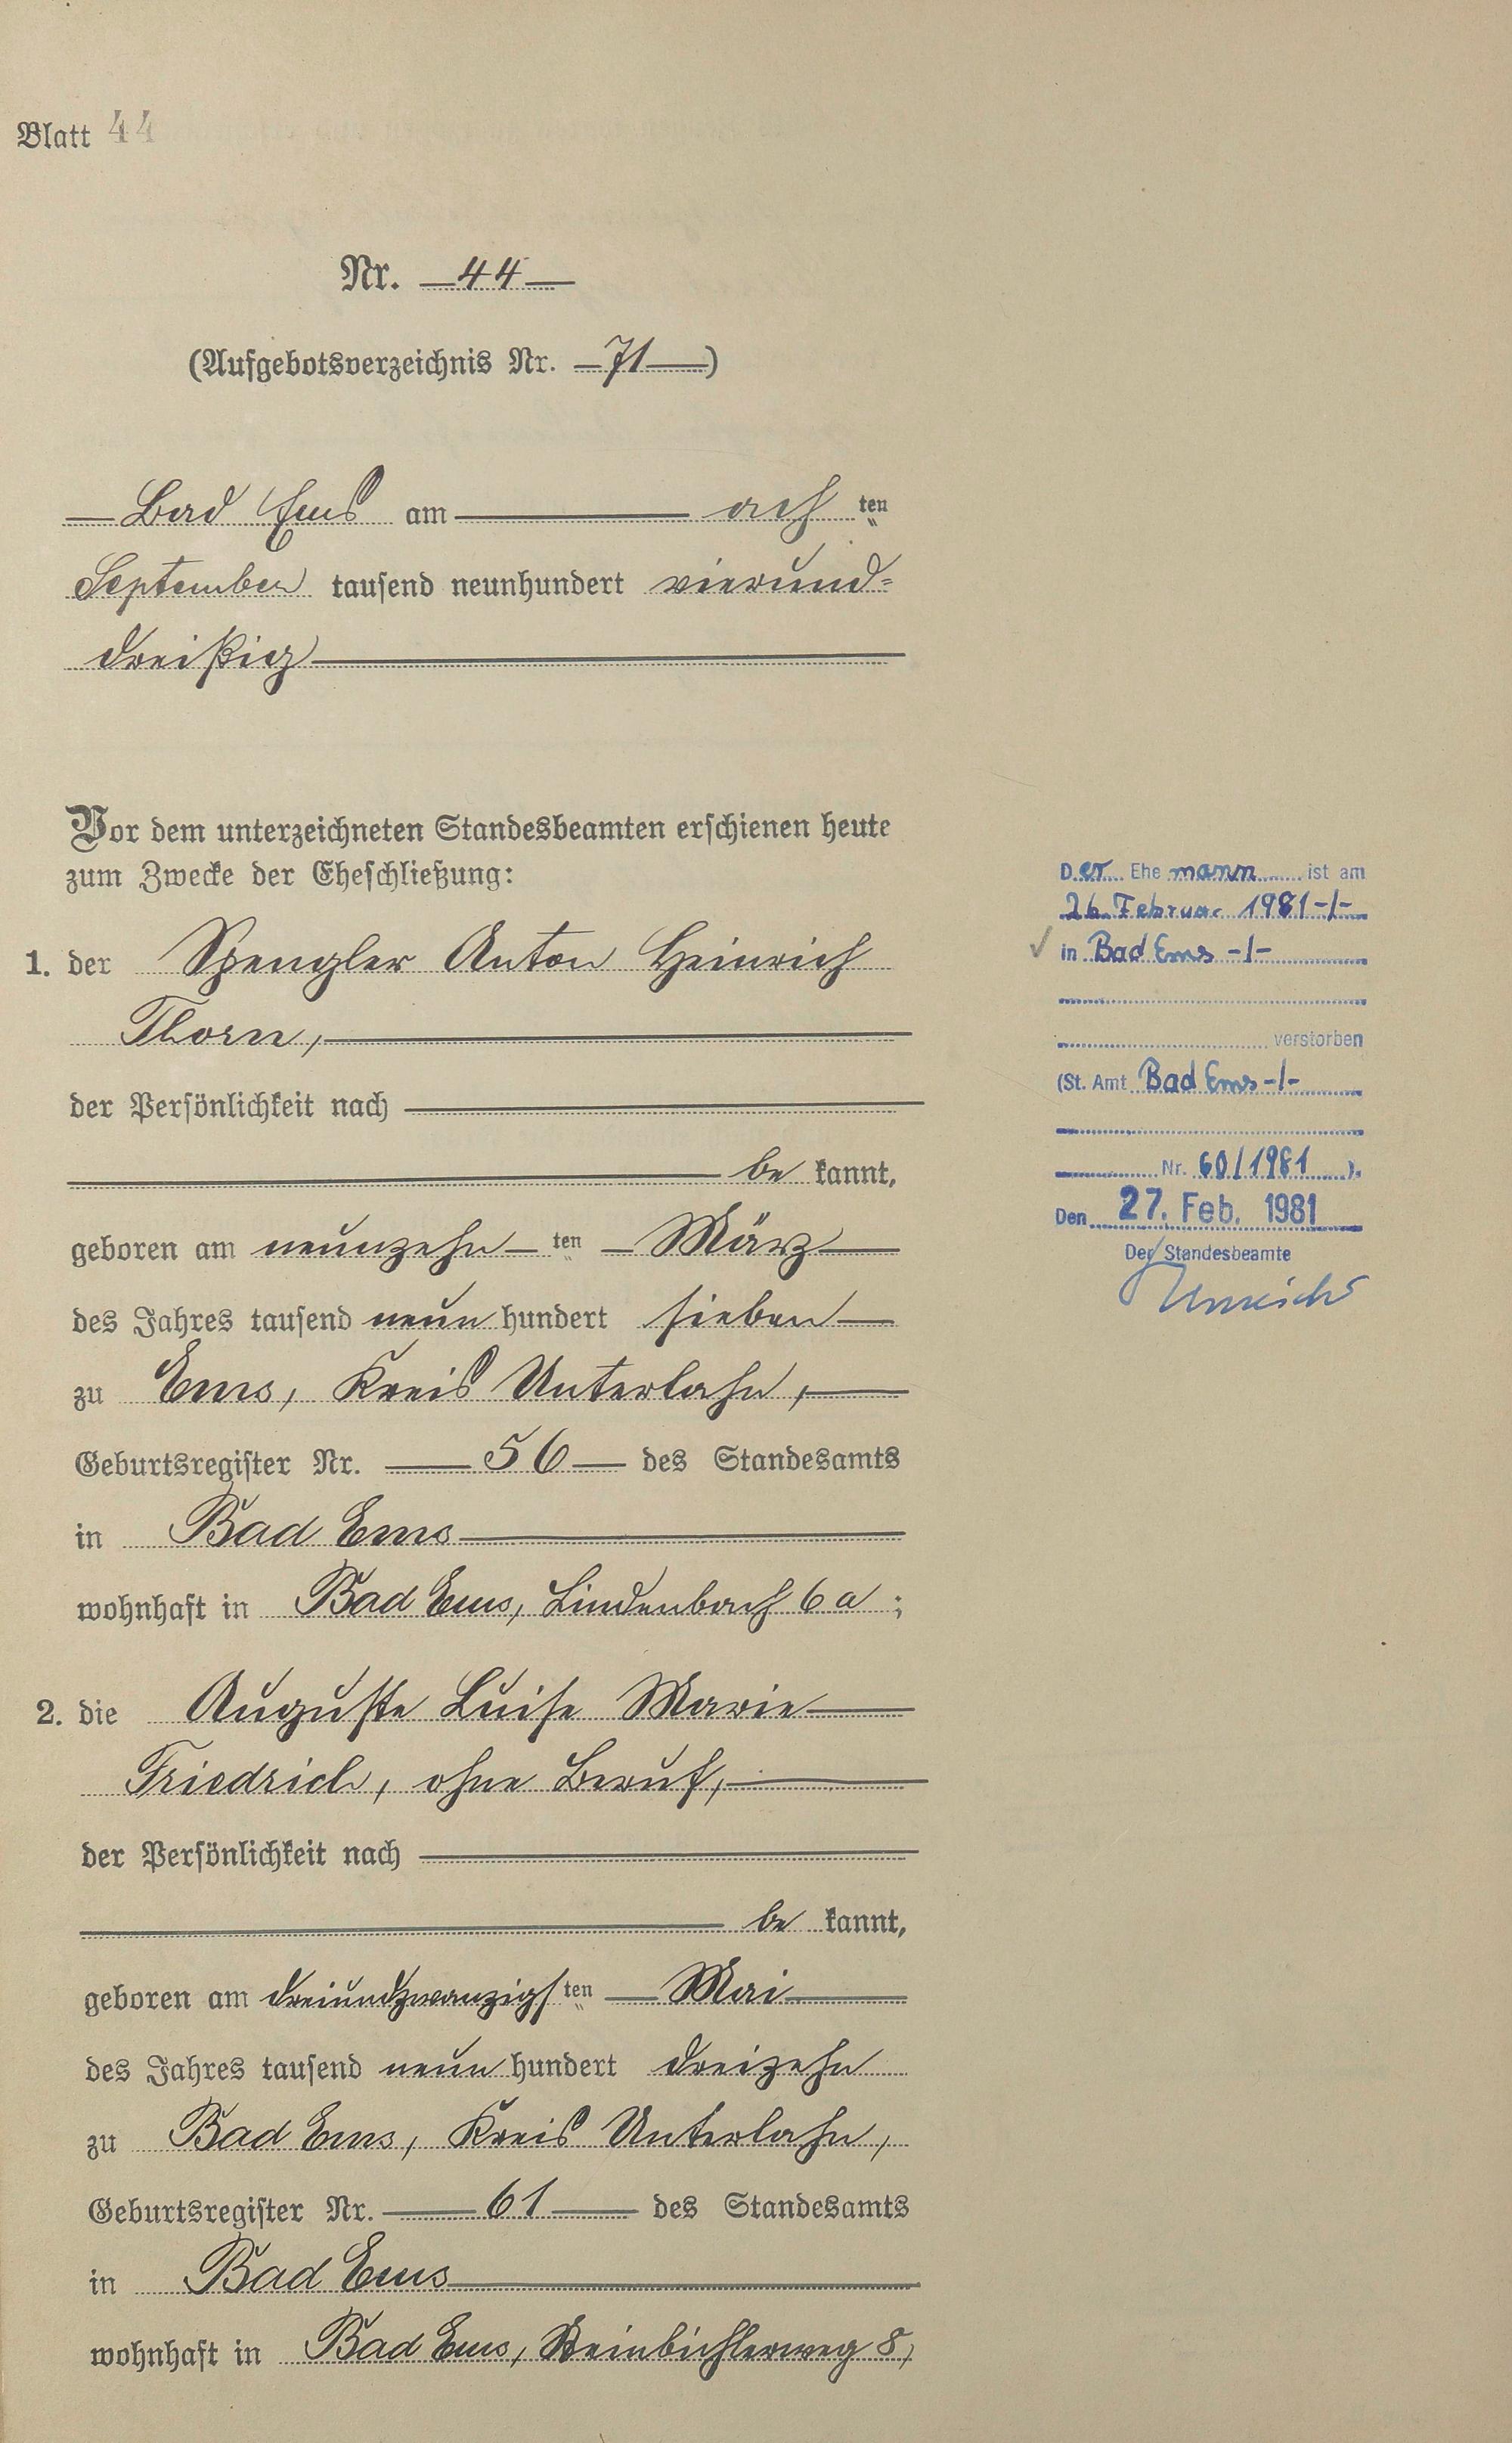 Blatt 44
Nr. 44
(Aufgebotsverzeichnis Nr. 71)
Bad Ems am ach ten
September tausend neunhundert vierund=
dreißig
Vor dem unterzeichneten Standesbeamten erschienen heute
zum Zwecke der Eheschließung:
1. der Spengler Anton Heinrich
Thorn,
der Persönlichkeit nach
be kannt,
geboren am neunzehn ten März
des Jahres tausend neun hundert sieben
zu Ems, Kreis Unterlahn,
Geburtsregister Nr. 56 des Standesamts
in Bad Ems
wohnhaft in Bad Ems, Lindenbach 6a;
2. die Auguste Luise Marie
Friedrich, ohne Beruf,
der Persönlichkeit nach
be kannt,
geboren am dreiundzwanzigs ten Mai
des Jahres tausend neun hundert dreizehn
zu Bad Ems, Kreis Unterlahn,
Geburtsregister Nr. 61 des Standesamts
in Bad Ems
wohnhaft in Bad Ems, 8,
Der Ehemann ist am
26. Februar 1981 -/-
in Bad Ems -/-
verstorben
(St. Amt Bad Ems -/-
Nr. 60/1981).
Den 27. Feb. 1981
Der Standesbeamte